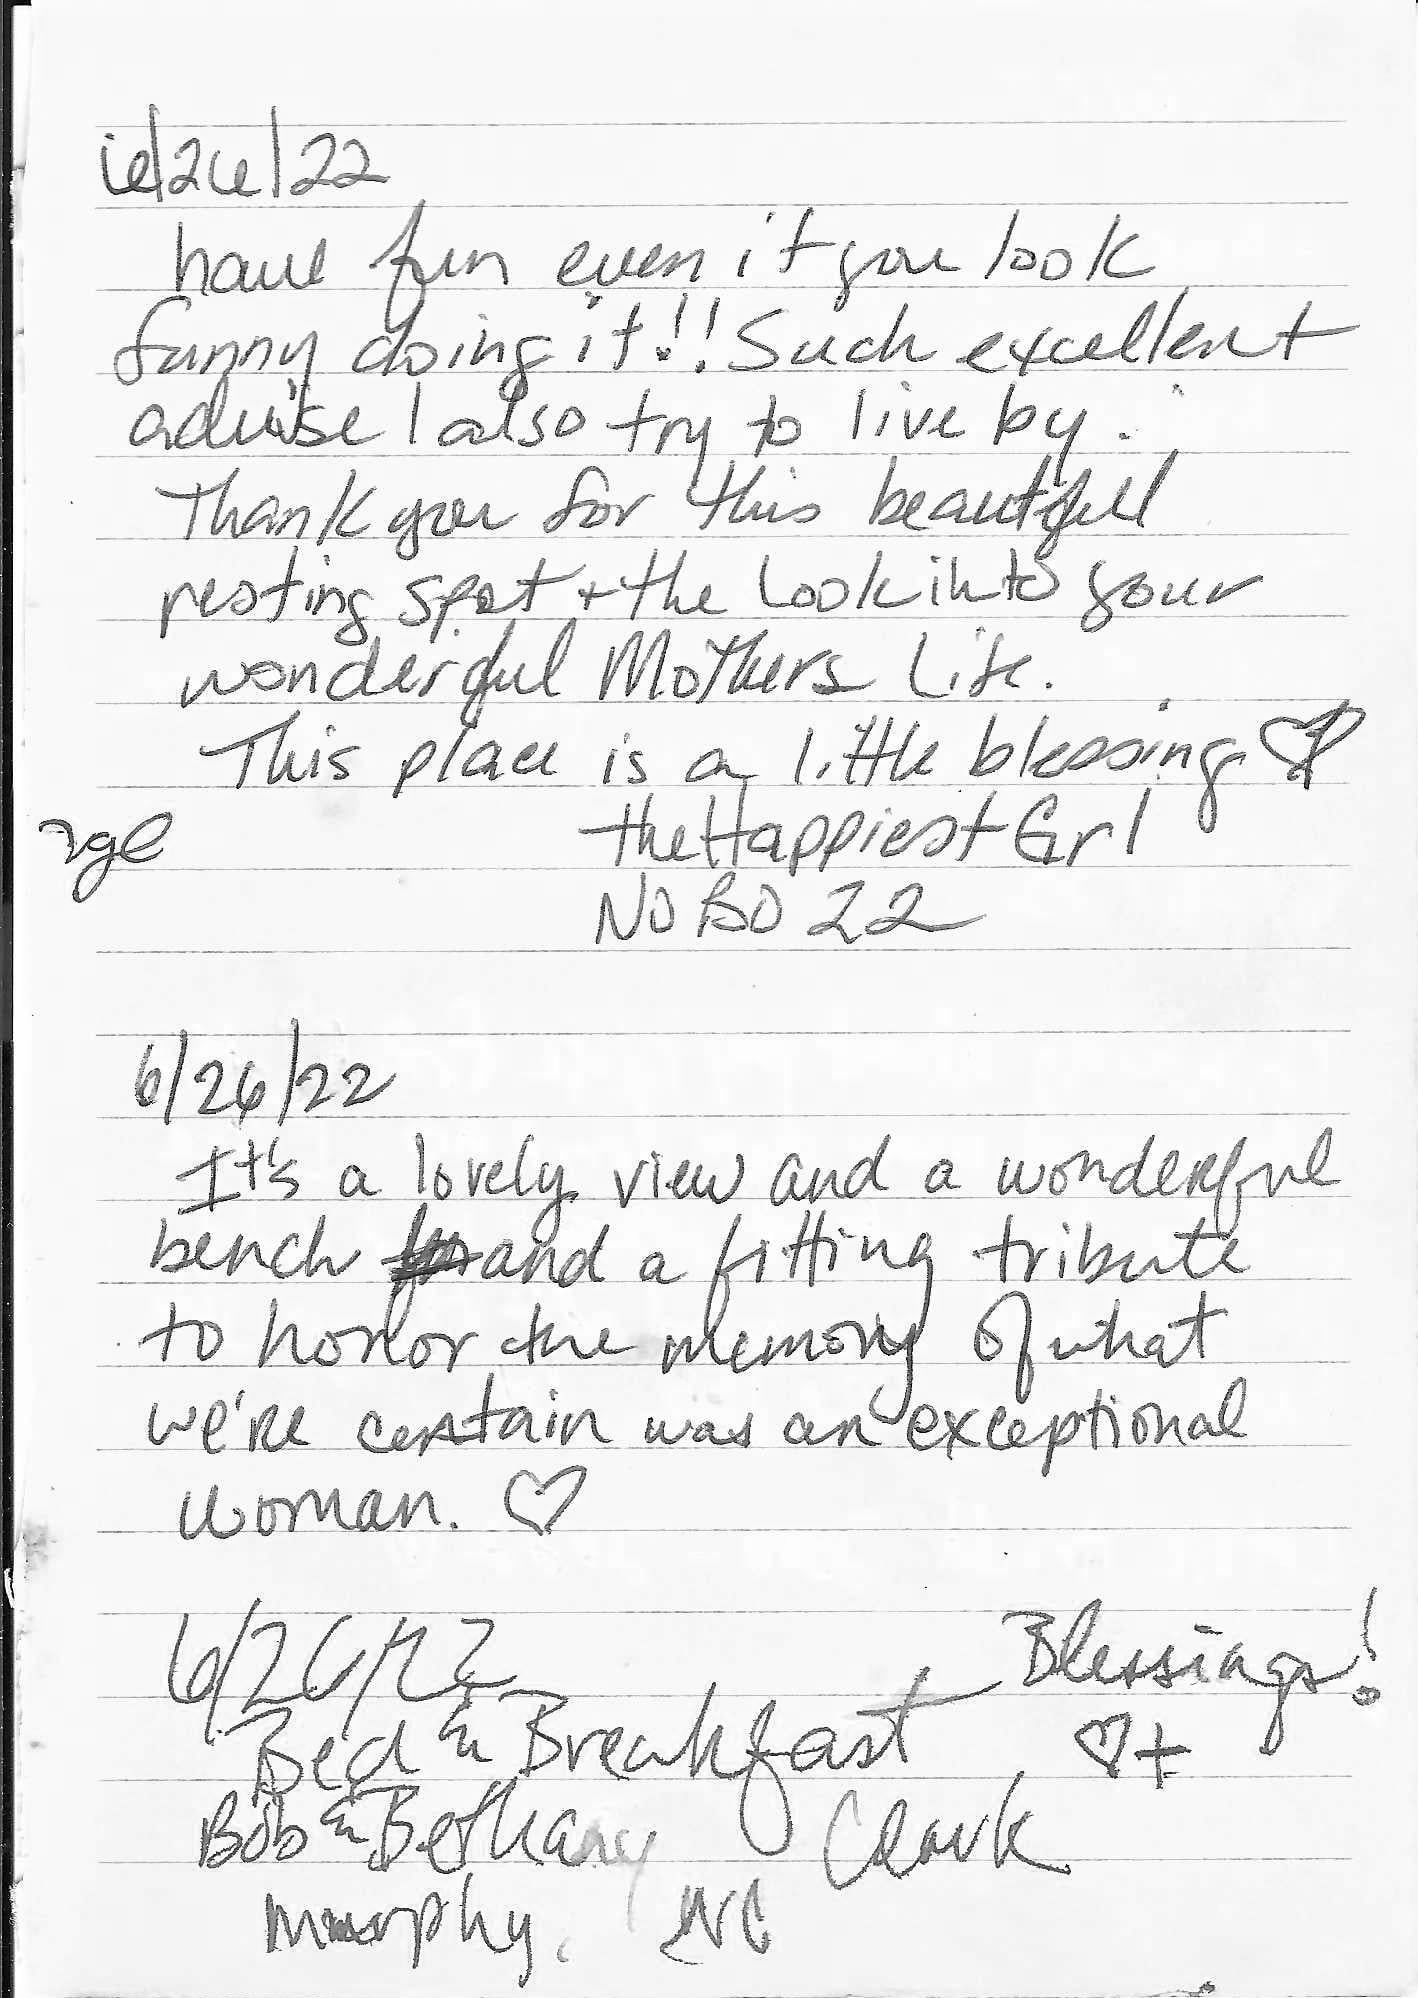 6/26/22
have fun even if you look
funny doing it!! Such excellent
advise I also try to live by.
Thank you for this beautiful
resting spot + the look into your
wonderful Mothers Life.
This place is a little blessing ♡
the Happiest Grl
NOBO 22
6/26/22
It's a lovely view and a wonderful
bench and a fitting tribute
to honor the memory of what
we're certain was an exceptional
woman. ♡
6/26/22 Blessings!
Bed & Breakfast ♡+
Bob & Bethany Clark
Murphy, NC